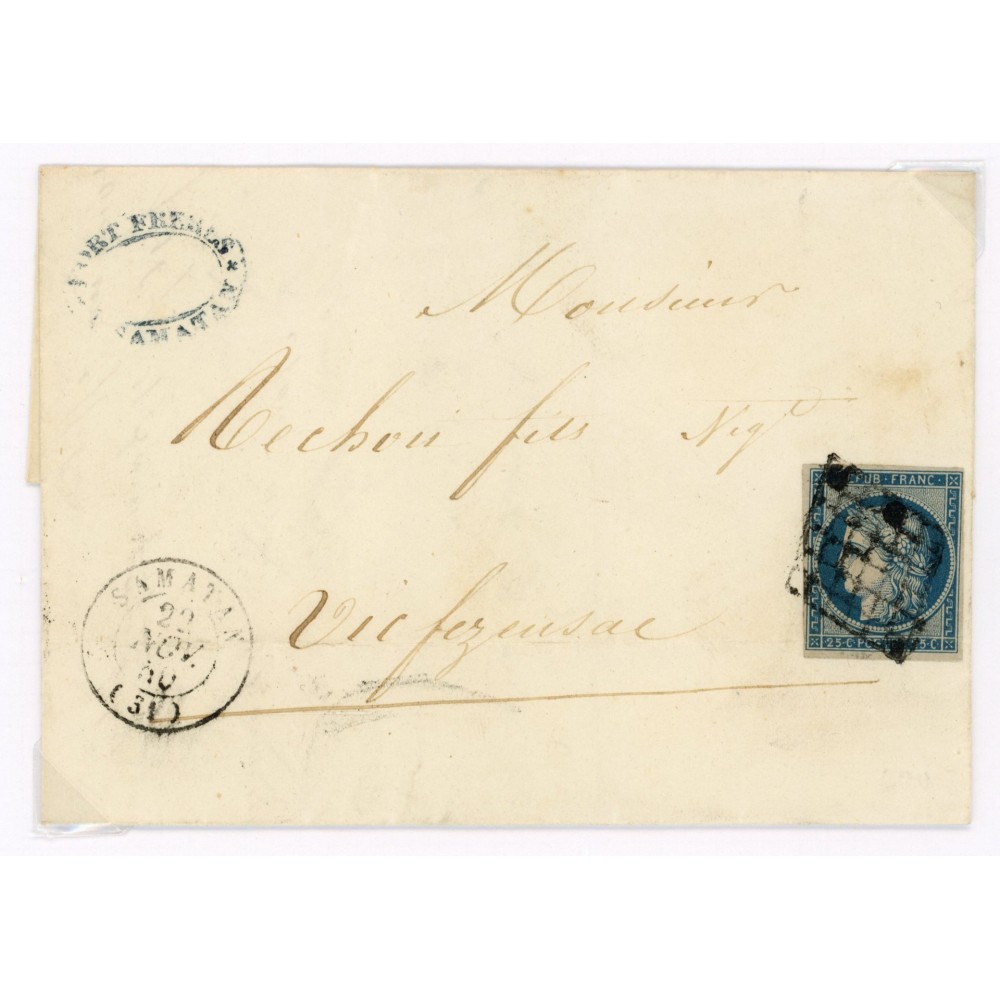 FORT FRERES * SAMATAN
Monsieur
Rechou fils Nég^t
Vicfezensac
SAMATAN
22
NOV.
50
(31)
REPUB·FRANC·
25·C POSTE 25·C